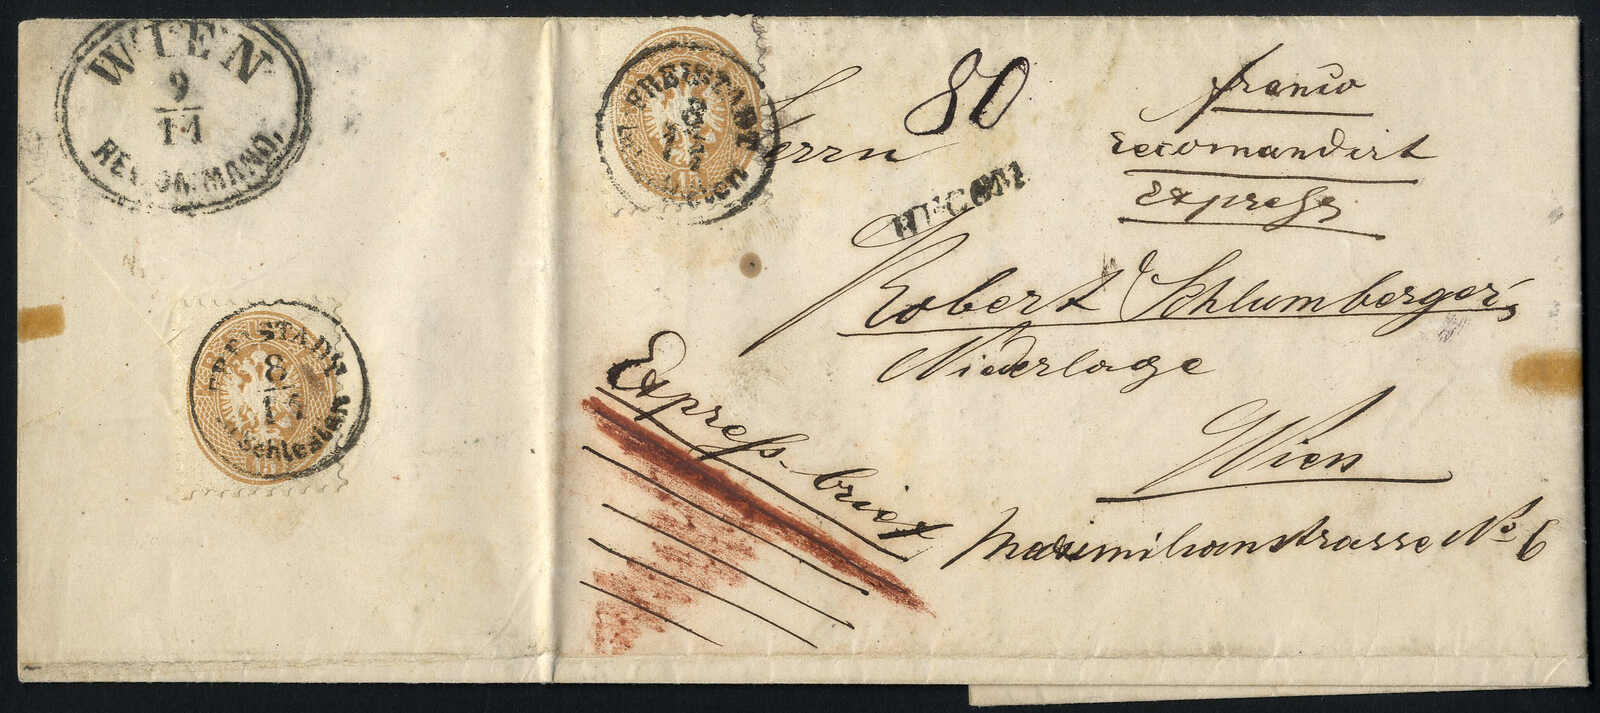 WIEN
9
11
RECOMMAND.
15
FREISTADT
8
11
in Schlesien
FREISTADT
8
11
Schlesien
15
80
franco
recomandirt
Express
RECOM
Herrn
Robert Schlumberger,
Niederlage
Wien
Maximilianstrasse No 6
Express-brief